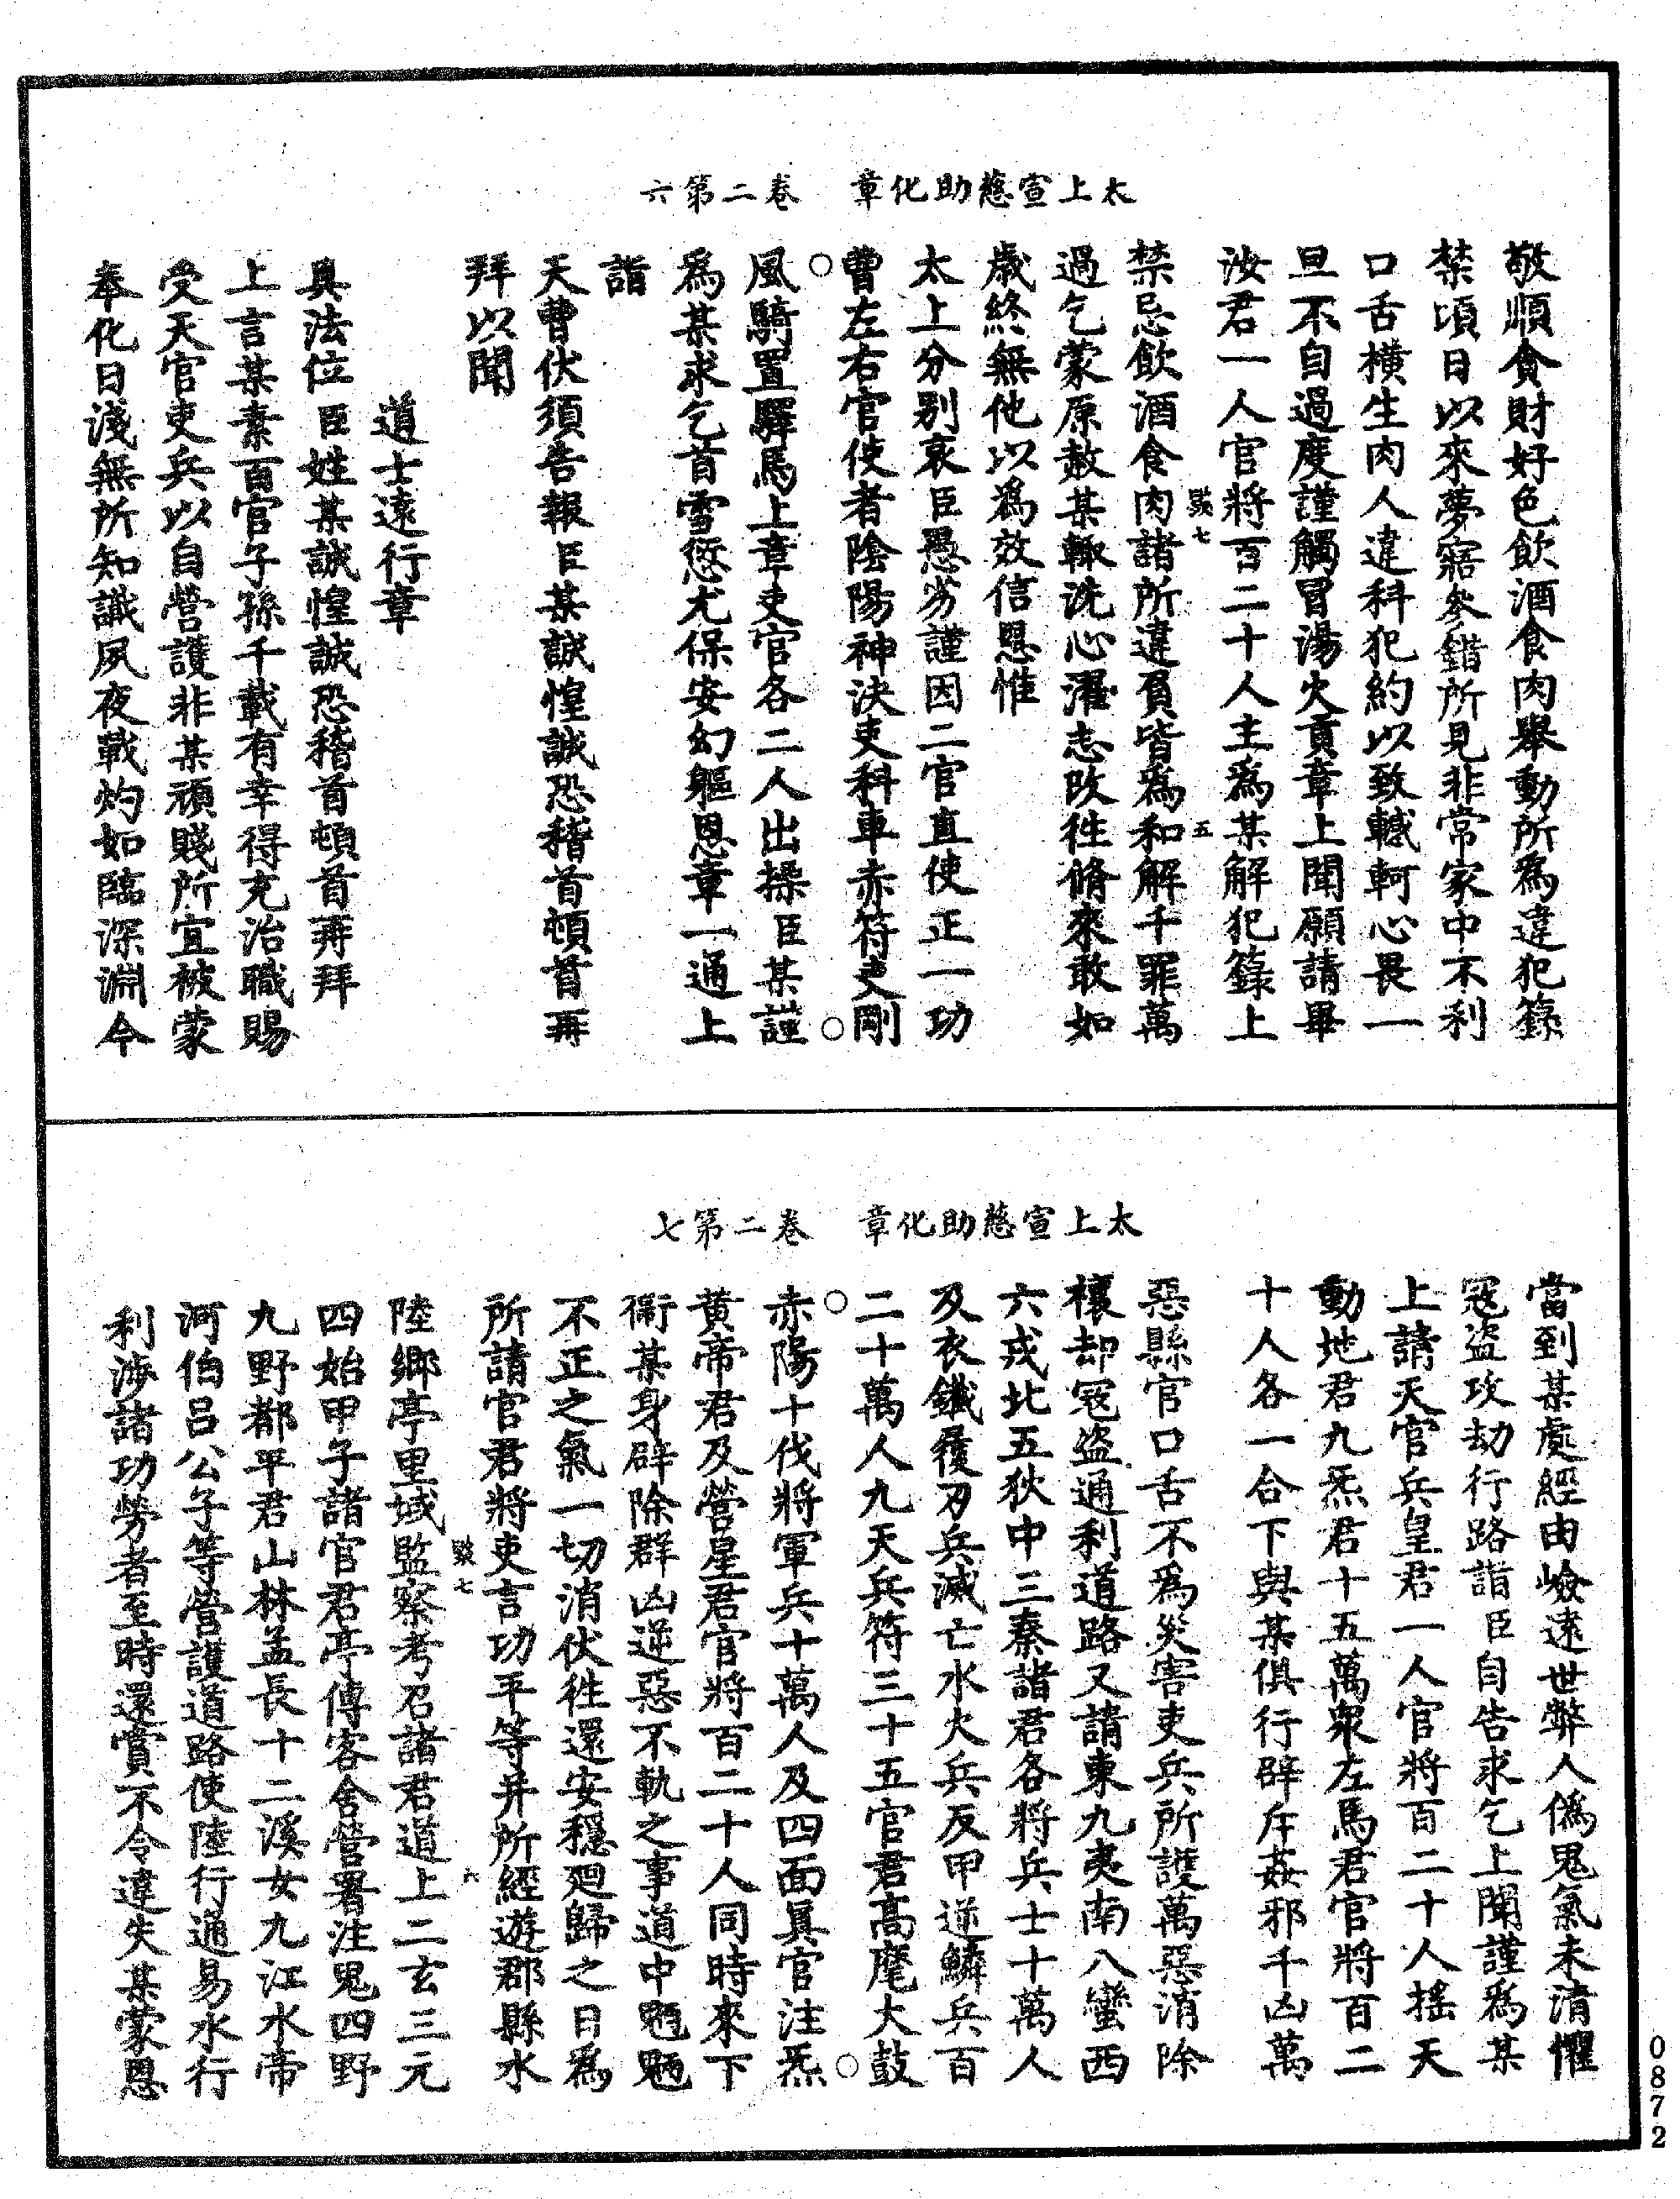 太上宣慈助化章　卷二第六
敬順食財好色飲酒食肉舉動所為違犯籙
禁頃日以來夢寤參錯所見非常家中不利
口舌橫生肉人違科犯約以致轗軻心畏一
旦不自過度謹觸冒湯火貢章上聞願請畢
汝君一人官將百二十人主為某解犯籙上
㲉七　五
禁忌飲酒食肉諸所違負皆為和解千罪萬
過乞蒙原赦某輙洗心濯志改徃脩來敢如
歲終無他以為效信恩惟
太上分別哀臣愚劣謹因二官直使正一功
曹左右官使者陰陽神決吏科車赤符吏剛
風騎置驛馬上章吏官各二人出操臣某謹
為某求乞首雪愆尤保安幻軀恩章一通上
詣
天曹伏須告報臣某誠惶誠恐稽首頓首再
拜以聞
道士遠行章
具法位臣姓某誠惶誠恐稽首頓首再拜
上言某素百官子孫千載有幸得充治職賜
受天官吏兵以自營護非某頑賤所宜被蒙
奉化日淺無所知識夙夜戰灼如臨深淵今
太上宣慈助化章　卷二第七
當到某處經由嶮遠世弊人偽鬼氣未清懼
寇盜攻劫行路詣臣自告求乞上聞謹為某
上請天官兵皇君一人官將百二十人搖天
動地君九炁君十五萬衆左馬君官將百二
十人各一合下與某俱行辟斥姦邪千凶萬
惡縣官口舌不為災害吏兵所護萬惡消除
禳却寇盜通利道路又請東九夷南八蠻西
六戎北五狄中三秦諸君各將兵士十萬人
及衣鐵覆刃兵滅亡水火兵反甲逆鱗兵百
二十萬人九天兵符三十五官君高麾大鼓
赤陽十伐將軍兵十萬人及四面真官注炁
黃帝君及營星君官將百二十人同時來下
衛某身辟除群凶逆惡不軌之事道中魍魎
不正之氣一切消伏徃還安穩廻歸之日為
所請官君將吏言功平等并所經遊郡縣水
㲉七　六
陸鄉亭里域監察考召諸君道上二玄三元
四始甲子諸官君亭傳客舍營署注鬼四野
九野都平君山林孟長十二溪女九江水帝
河伯呂公子等營護道路使陸行通易水行
利涉諸功勞者至時還賞不令違失某蒙恩
0872